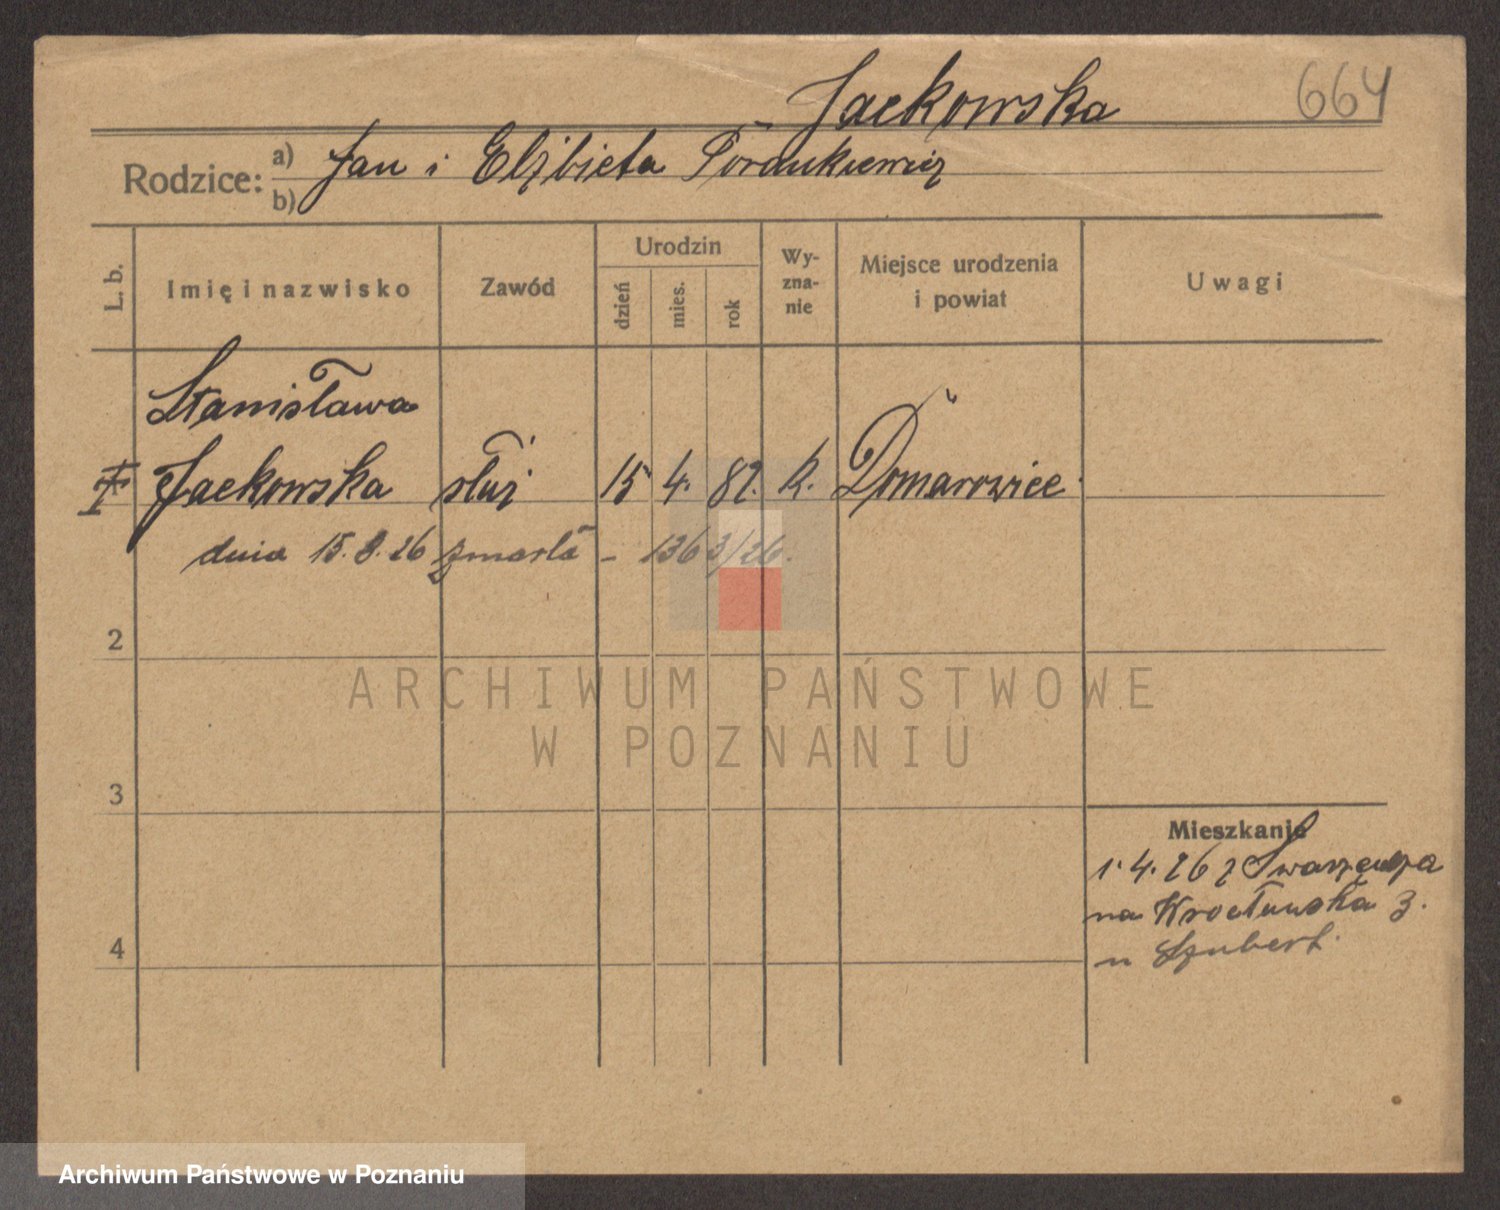 Jackowska
664
Rodzice: a) Jan i Elżbieta
b)
L. b.
Imię i nazwisko
Zawód
Urodzin
dzień
mies.
rok
Wy-
zna-
nie
Miejsce urodzenia
i powiat
Uwagi
Stanisława
Jackowska służ 15 4. 82. k.
dnia 15.8.26 zmarła – 1363/26.
2
3
4
Mieszkanie
1.4.26 z Swarzędza
na 3.
u Szubert.
ARCHIWUM PAŃSTWOWE
W POZNANIU
Archiwum Państwowe w Poznaniu